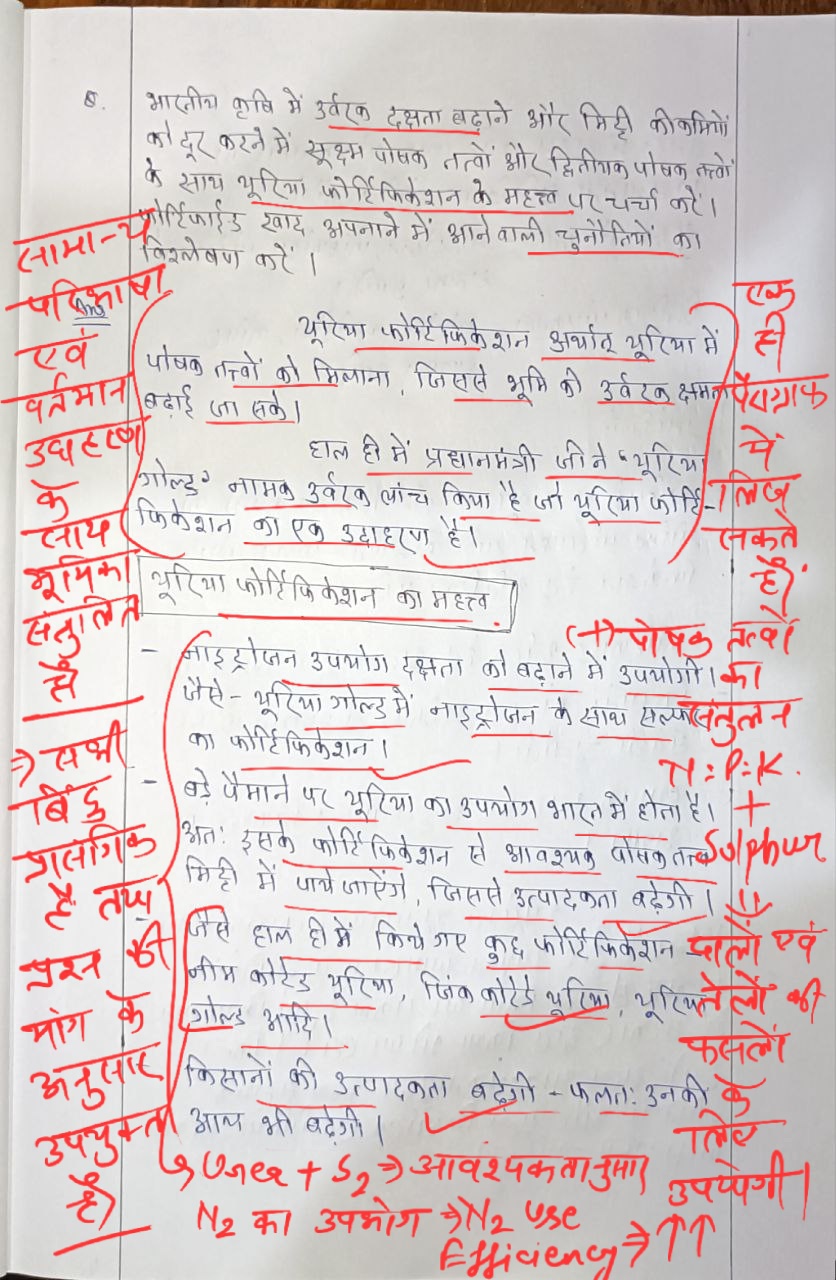 5. भारतीय कृषि में उर्वरक दक्षता बढ़ाने और मिट्टी की कमियों
को दूर करने में सूक्ष्म पोषक तत्वों और द्वितीयक पोषक तत्वों
के साथ यूरिया फोर्टिफिकेशन के महत्त्व पर चर्चा करें।
फोर्टिफाईड खाद अपनाने में आने वाली चुनौतियों का
विश्लेषण करें।
Ans
यूरिया फोर्टिफिकेशन अर्थात् यूरिया में
पोषक तत्त्वों को मिलाना, जिससे भूमि की उर्वरक क्षमता
बढ़ाई जा सके।
हाल ही में प्रधानमंत्री जी ने "यूरिया
गोल्ड" नामक उर्वरक लांच किया है जो यूरिया फोर्टि-
फिकेशन का एक उदाहरण है।
यूरिया फोर्टिफिकेशन का महत्त्व
- नाइट्रोजन उपयोग दक्षता को बढ़ाने में उपयोगी।
जैसे - यूरिया गोल्ड में नाइट्रोजन के साथ सल्फर
का फोर्टिफिकेशन।
- बड़े पैमाने पर यूरिया का उपयोग भारत में होता है।
अतः इसके फोर्टिफिकेशन से आवश्यक पोषक तत्त्व
मिट्टी में पाये जाएंगे, जिससे उत्पादकता बढ़ेगी।
जैसे हाल ही में किये गए कुछ फोर्टिफिकेशन -
नीम कोटेड यूरिया, जिंक कोटेड यूरिया, यूरिया
गोल्ड आदि।
किसानों की उत्पादकता बढ़ेगी - फलतः उनकी
आय भी बढ़ेगी।
सामान्य
परिभाषा
एवं
वर्तमान
उदाहरण
के
साथ
भूमिका
संतुलित
है
⇒ सभी
बिंदु
प्रासंगिक
है तथा
प्रश्न की
मांग के
अनुसार
उपयुक्त
है।
एक
ही
पैराग्राफ
में
लिख
सकते
हैं।
(+) पोषक तत्वों
का
संतुलन
N:P:K.
+
Sulphur
⇓
दालों एवं
तेलों की
फसलों
के
लिए
उपयोगी।
Urea + S2 ⇒ आवश्यकतानुसार
N2 का उपभोग ⇒ N2 use
Efficiency ⇒ ↑↑